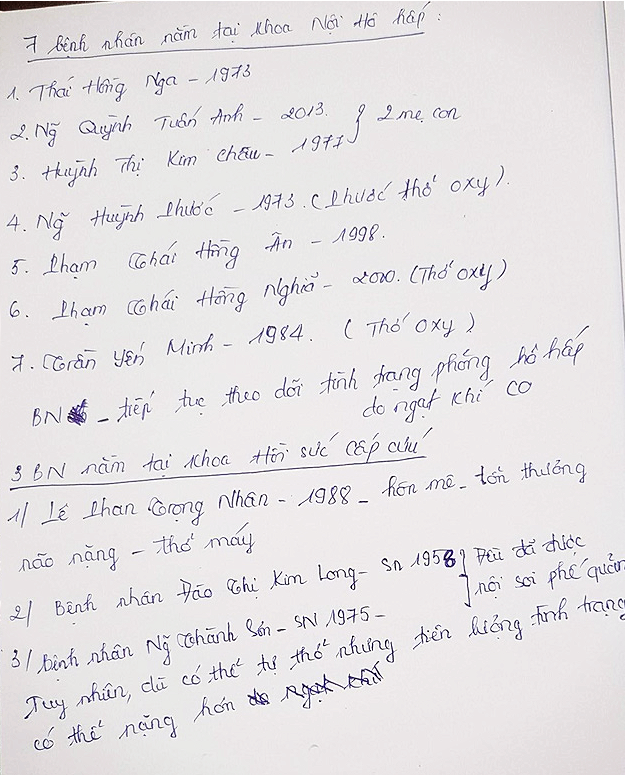 7 bệnh nhân nằm tại khoa Nội Hô hấp:
1. Thái Hồng Nga - 1973
2. Ng~ Quỳnh Tuấn Anh - 2013. } 2 mẹ con
3. Huỳnh Thị Kim Châu - 1977
4. Ng~ Huỳnh Phước - 1973. (Phước thở oxy).
5. Phạm Thái Hồng Ân - 1998.
6. Phạm Thái Hồng Nghĩa - 2000. (Thở oxy)
7. Trần Yến Minh - 1984. (Thở oxy)
BN - tiếp tục theo dõi tình trạng phỏng hô hấp
do ngạt khí CO
3 BN nằm tại khoa Hồi sức cấp cứu
1/ Lê Phan Trọng Nhân - 1988 - hôn mê - tổn thương
não nặng - thở máy
2/ Bệnh nhân Đào Thị Kim Long - SN 1958 } Đều đã được
nội soi phế quản
3/ Bệnh nhân Ng~ Thành Sơn - SN 1975 -
Tuy nhiên, dù có thể tự thở nhưng tiên lượng tình trạng
có thể nặng hơn